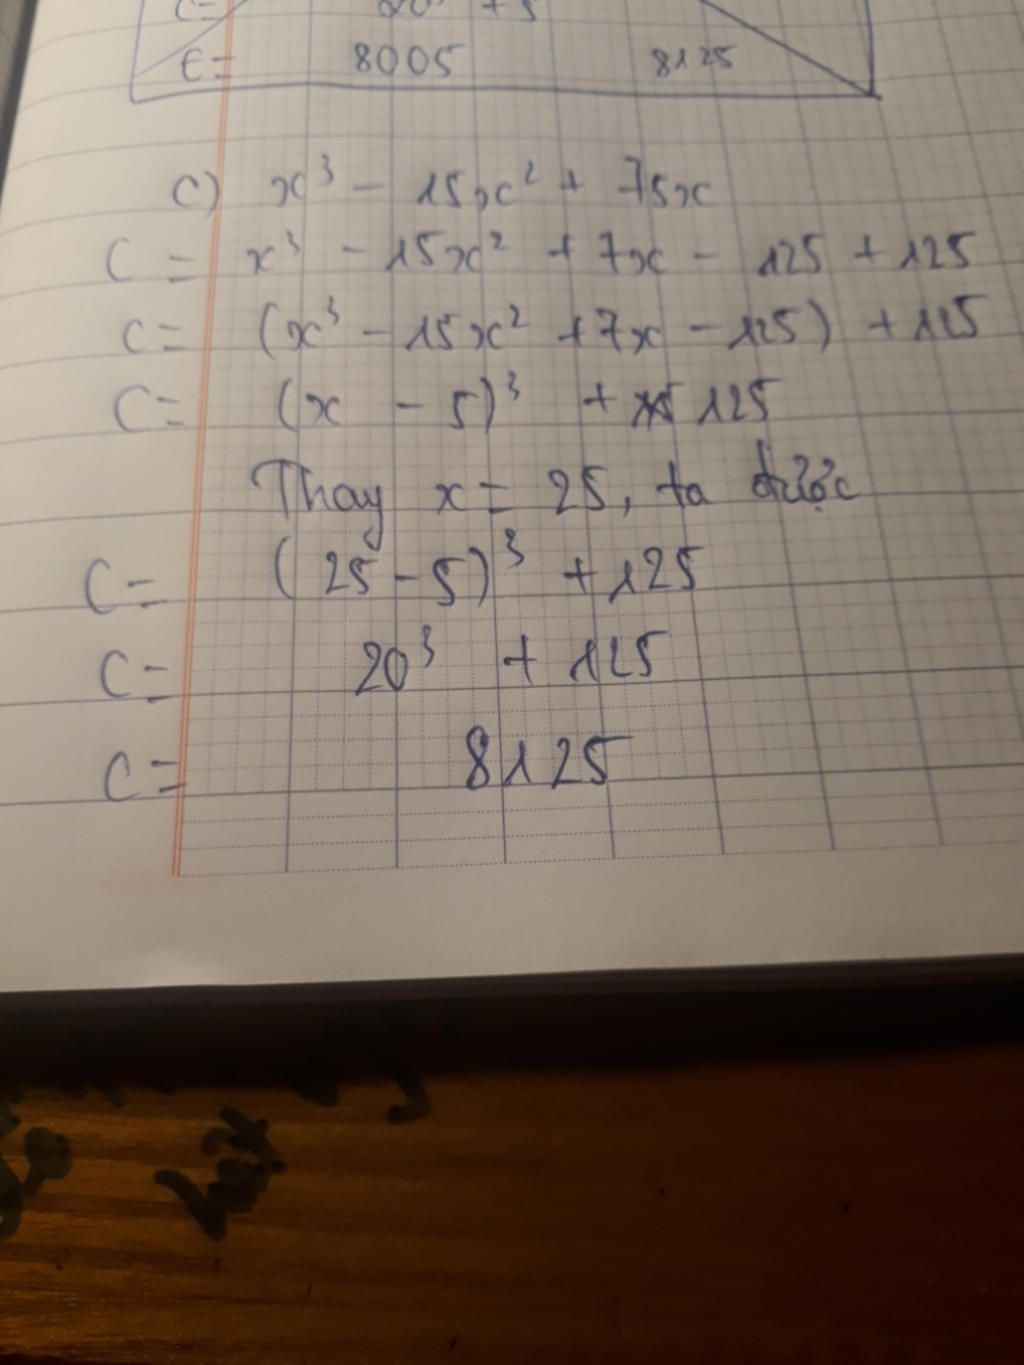 C= 20 + 5
C= 8005 8125
C) x³ - 15x² + 75x
C = x³ - 15x² + 7x - 125 + 125
C= (x³ - 15x² + 7x - 125) + 125
C= (x - 5)³ + 125
Thay x = 25, ta được
C= (25 - 5)³ + 125
C= 20³ + 125
C= 8125